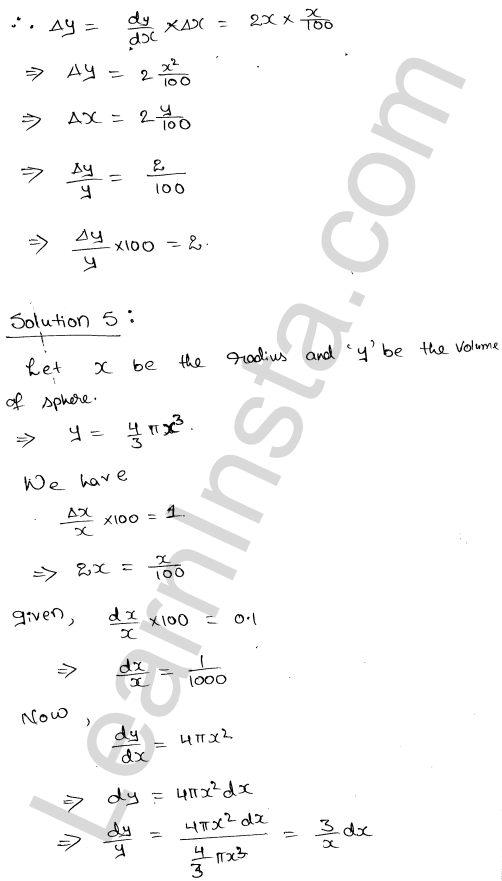 ∴ Δy = dy/dx × Δx = 2x × x/100
⇒ Δy = 2 x²/100
⇒ Δx = 2 y/100
⇒ Δy/y = 2/100
⇒ Δy/y × 100 = 2.
Solution 5 :
Let x be the radius and 'y' be the volume
of sphere.
⇒ y = 4/3 πx³.
We have
Δx/x × 100 = 1
⇒ 2x = x/100
given, dx/x × 100 = 0.1
⇒ dx/x = 1/1000
Now,
dy/dx = 4πx²
⇒ dy = 4πx² dx
⇒ dy/y = 4πx² dx / 4/3 πx³ = 3/x dx
LearnInsta.com